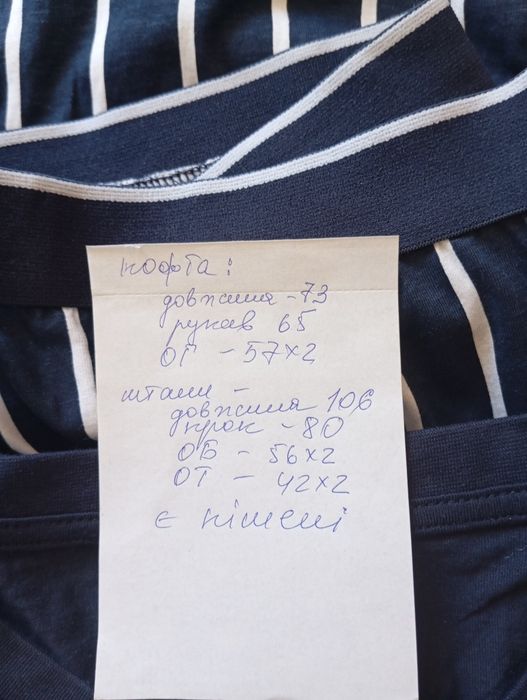 кофта:
довжина -73
рукав 65
ОГ - 57x2
штани -
довжина 106
крок - 80
ОБ - 56x2
ОТ - 42x2
є кішені